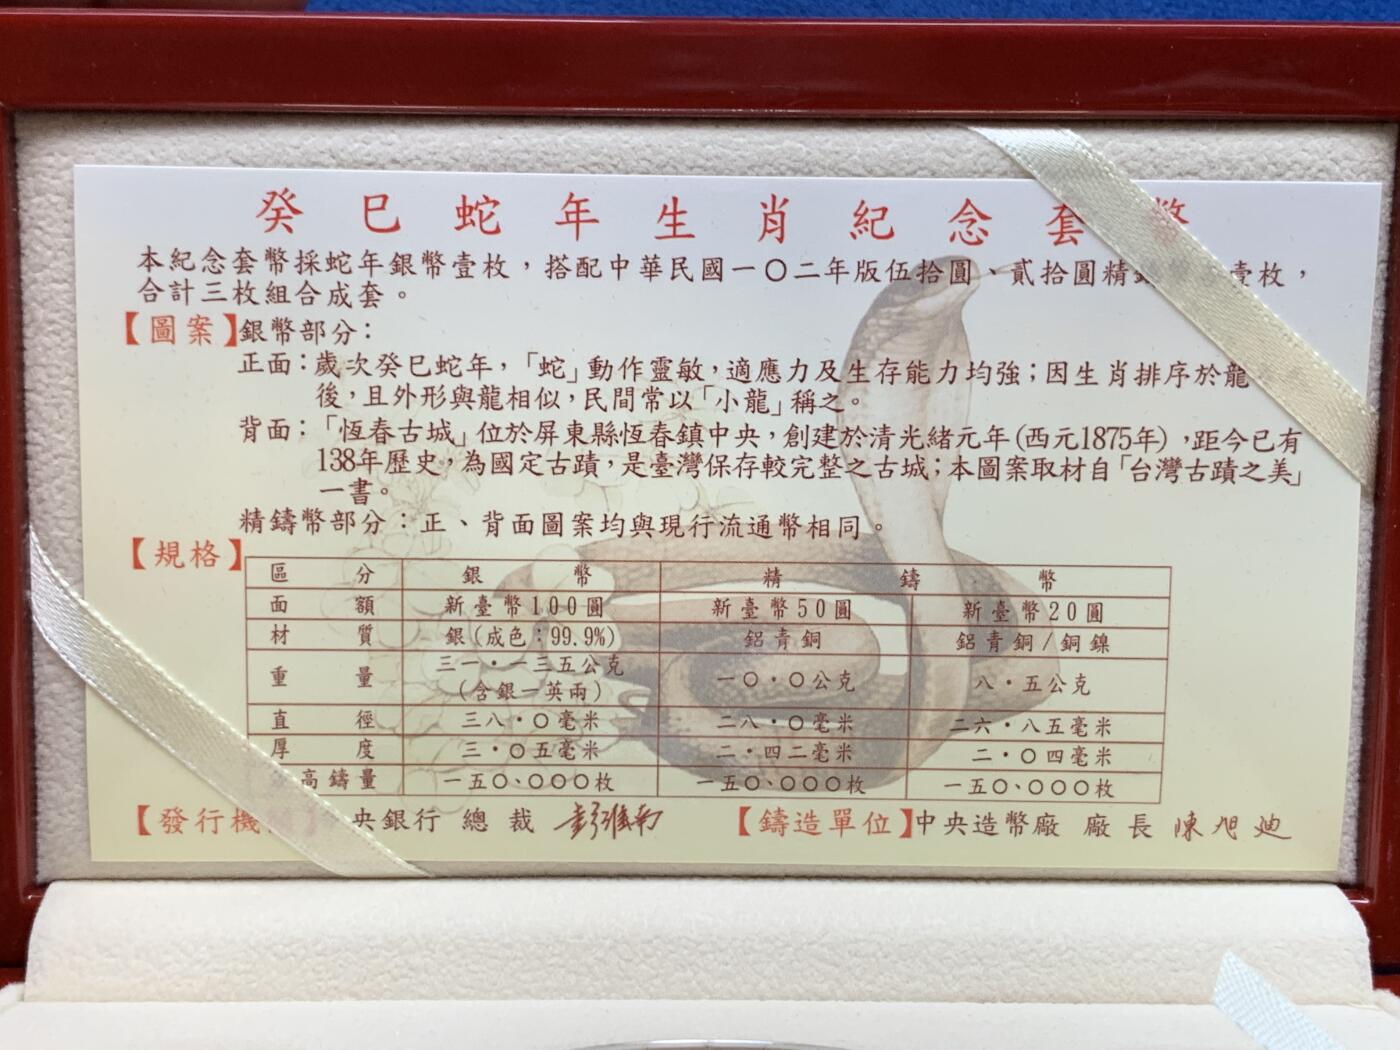 癸巳蛇年生肖紀念套幣
本紀念套幣採蛇年銀幣壹枚，搭配中華民國一〇二年版伍拾圓、貳拾圓精 壹枚，
合計三枚組合成套。
【圖案】銀幣部分：
正面：歲次癸巳蛇年，「蛇」動作靈敏，適應力及生存能力均強；因生肖排序於龍
後，且外形與龍相似，民間常以「小龍」稱之。
背面：「恆春古城」位於屏東縣恆春鎮中央，創建於清光緒元年(西元1875年)，距今已有
138年歷史，為國定古蹟，是臺灣保存較完整之古城；本圖案取材自「台灣古蹟之美」
一書。
精鑄幣部分：正、背面圖案均與現行流通幣相同。
【規格】
區分 銀幣 精鑄幣
面額 新臺幣100圓 新臺幣50圓 新臺幣20圓
材質 銀(成色：99.9%) 鋁青銅 鋁青銅/銅鎳
重量 三一·一三五公克 一〇·〇公克 八·五公克
(含銀一英兩)
直徑 三八·〇毫米 二八·〇毫米 二六·八五毫米
厚度 三·〇五毫米 二·四二毫米 二·〇四毫米
高鑄量 一五〇、〇〇〇枚 一五〇、〇〇〇枚 一五〇、〇〇〇枚
【發行機 央銀行 總裁 彭淮南
【鑄造單位】中央造幣廠 廠長 陳旭迪